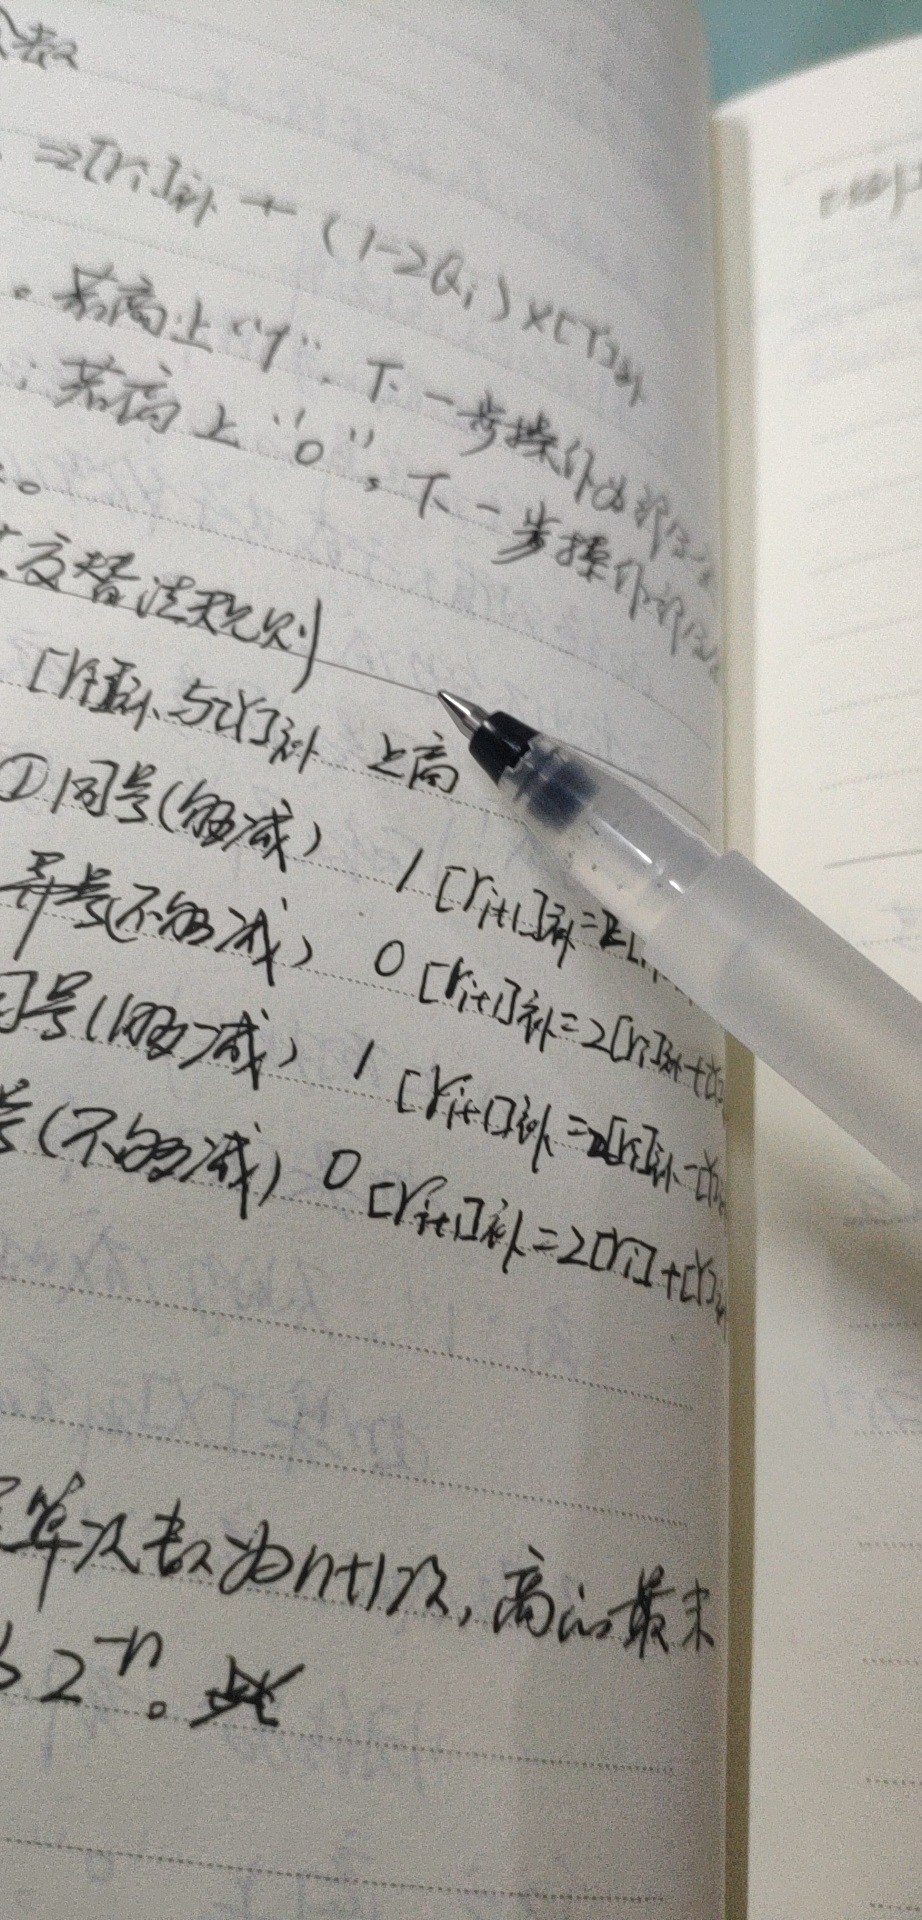 数
=2[ri]补 + (1-2Qi)×[Y]补
。若商上“1”，下一步操作为部分
；若商上“0”，下一步操作部分
。
交替法规则
[ri]补与[Y]补 上商
①同号(够减) 1 [ri+1]补=2[
异号(不够减) 0 [ri+1]补=2[ri]补+[
同号(够减) 1 [ri+1]补=2[ri]补-[Y]
号(不够减) 0 [ri+1]补=2[ri]+[Y]补
算次数为n+1次，商的最末
2⁻ⁿ。